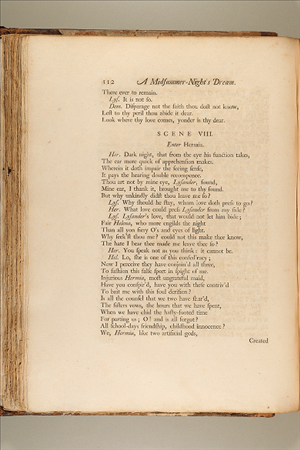 112 A Midsummer-Night's Dream.
There ever to remain.
Lys. It is not so.
Dem. Disparage not the faith thou dost not know,
Lest to thy peril thou abide it dear.
Look where thy love comes, yonder is thy dear.
SCENE VIII.
Enter Hermia.
Her. Dark night, that from the eye his function takes,
The ear more quick of apprehension makes.
Wherein it doth impair the seeing sense,
It pays the hearing double recompence.
Thou art not by mine eye, Lysander, found,
Mine ear, I thank it, brought me to thy sound.
But why unkindly didst thou leave me so?
Lys. Why should he stay, whom love doth press to go?
Her. What love could press Lysander from my side?
Lys. Lysander's love, that would not let him bide;
Fair Helena, who more engilds the night
Than all yon fiery O's and eyes of light.
Why seek'st thou me? could not this make thee know,
The hate I bear thee made me leave thee so?
Her. You speak not as you think; it cannot be.
Hel. Lo, she is one of this confed'racy;
Now I perceive they have conjoin'd all three,
To fashion this false sport in spight of me.
Injurious Hermia, most ungrateful maid,
Have you conspir'd, have you with these contriv'd
To bait me with this foul derision?
Is all the counsel that we two have shar'd,
The sisters vows, the hours that we have spent,
When we have chid the hasty-footed time
For parting us; O! and is all forgot?
All school-days friendship, childhood innocence?
We, Hermia, like two artificial gods,
Created